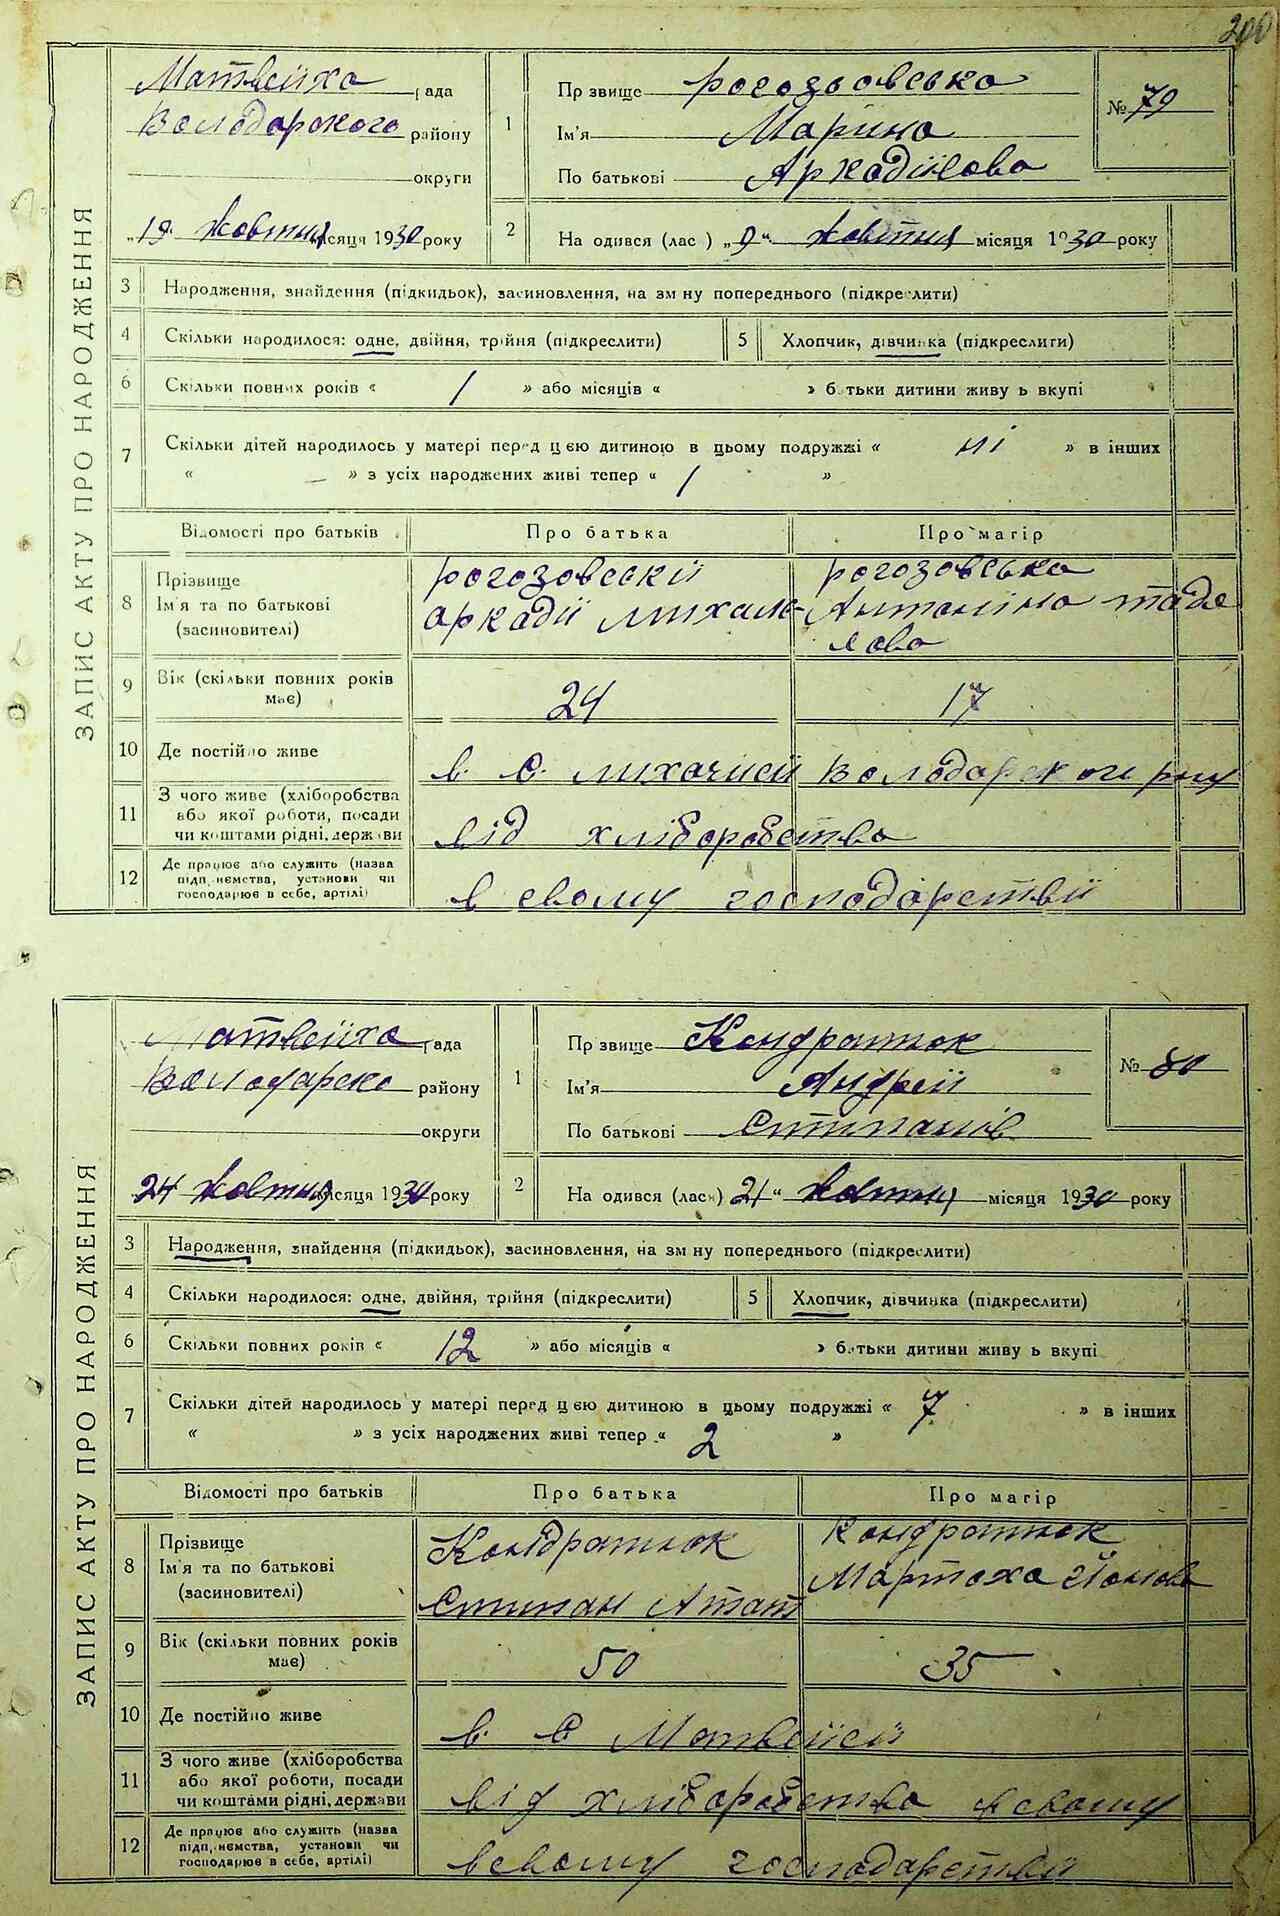 200
ЗАПИС АКТУ ПРО НАРОДЖЕННЯ
Матвеиха рада
Володарского району
округи
„19„ Жовтня місяця 1930 року
1
Пр звище рогозовська
Ім'я Марина
По батькові Аркадіїева
№ 79
2
На одився (лас ) „9“ жовтня місяця 1930 року
3 Народження, знайдення (підкидьок), засиновлення, на зм ну попереднього (підкреслити)
4 Скільки народилося: одне, двійня, трійня (підкреслити)
5 Хлопчик, дівчинка (підкреслити)
6 Скільки повних років « 1 » або місяців « » б тьки дитини живу ь вкупі
7 Скільки дітей народилось у матері перед цією дитиною в цьому подружжі « ні » в інших
« — » з усіх народжених живі тепер « 1 »
Відомості про батьків Про батька Про матір
8 Прізвище
Ім'я та по батькові
(засиновителі)
рогозовский
аркадії михаль-
рогозовська
Антоніна таде
єва
9 Вік (скільки повних років
має)
24 17
10 Де постійно живе в. с. лихачисй Володарского р-ну
11 З чого живе (хліборобства
або якої роботи, посади
чи коштами рідні, держави
від хліборобства
12 Де працює або служить (назва
підп, иємства, установи чи
господарює в себе, артілі)
в свому господарствіі
ЗАПИС АКТУ ПРО НАРОДЖЕННЯ
Матвеиха рада
Володарско району
округи
24 Жовтня місяця 1930 року
1
Пр звище Кондратюк
Ім'я Андрей
По батькові Стипанів
№ 80
2
На одився (лась) 21“ Жовтня місяця 1930 року
3 Народження, знайдення (підкидьок), засиновлення, на зм ну попереднього (підкреслити)
4 Скільки народилося: одне, двійня, трійня (підкреслити)
5 Хлопчик, дівчинка (підкреслити)
6 Скільки повних років « 12 » або місяців « » батьки дитини живу ь вкупі
7 Скільки дітей народилось у матері перед цією дитиною в цьому подружжі « 7 » в інших
« » з усіх народжених живі тепер « 2 »
Відомості про батьків Про батька Про матір
8 Прізвище
Ім'я та по батькові
(засиновителі)
Кондратюк
Стипан
Кондратюк
Мартоха
9 Вік (скільки повних років
має)
50 35
10 Де постійно живе в. с Матвеисй
11 З чого живе (хліборобства
або якої роботи, посади
чи коштами рідні, держави
від хліборобства в свому
12 Де працює або служить (назва
підп, иємства, установи чи
господарює в себе, артілі)
в свому господарствіі